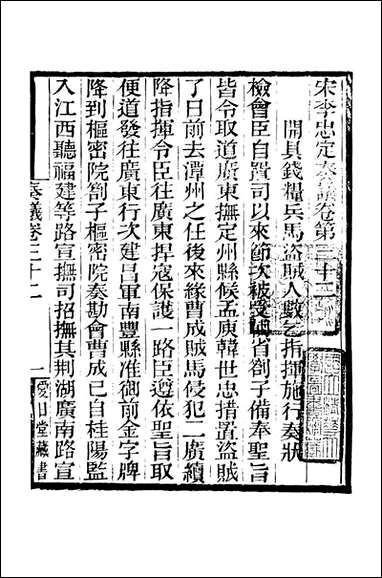 宋李忠定奏議卷第三十二
開具錢糧兵馬盜賊人數乞指揮施行奏狀
檢會臣自置司以來節次被受省劄子備奉聖旨
皆令取道廣東撫定州縣候孟庾韓世忠措置盜賊
了日前去潭州之任後來緣曹成賊馬侵犯二廣續
降指揮令臣往廣東捍寇保護一路臣遵依聖旨取
便道發往廣東行次建昌軍南豐縣准御前金字牌
降到樞密院劄子樞密院奏勘會曹成已自桂陽監
入江西聽福建等路宣撫司招撫其荆湖廣南路宣
奏議卷三十二
一
愛日堂藏書